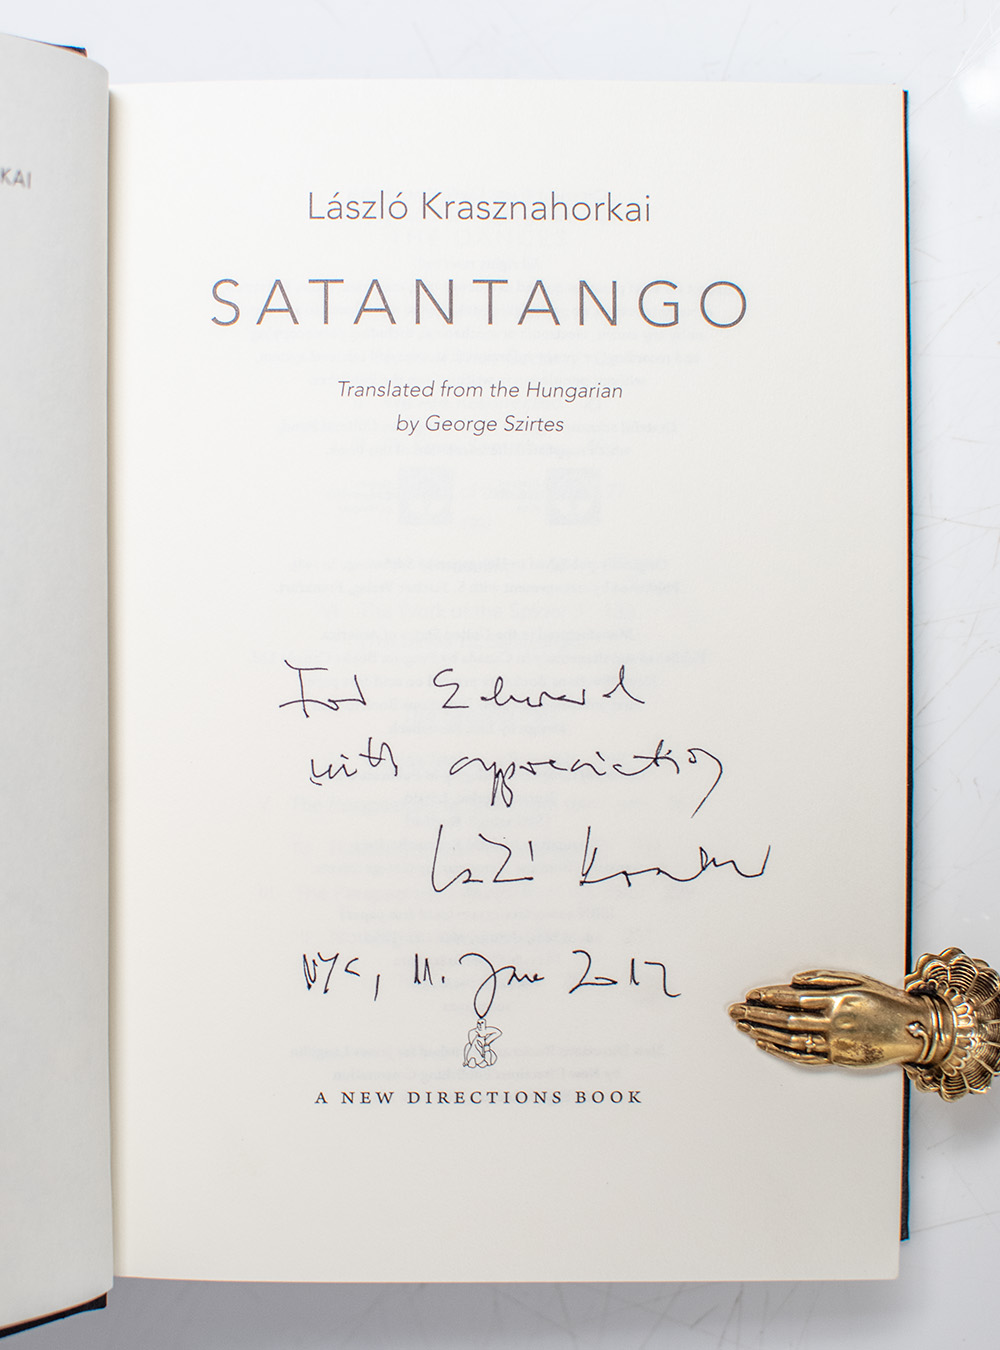 KAI
László Krasznahorkai
SATANTANGO
Translated from the Hungarian
by George Szirtes
For Edward
with appreciation
NYC, 11. June 2012
A NEW DIRECTIONS BOOK